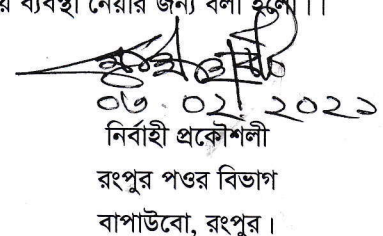 র ব্যবস্থা নেয়ার জন্য বলা হলো।।
নির্বাহী প্রকৌশলী
রংপুর পওর বিভাগ
বাপাউবো, রংপুর।